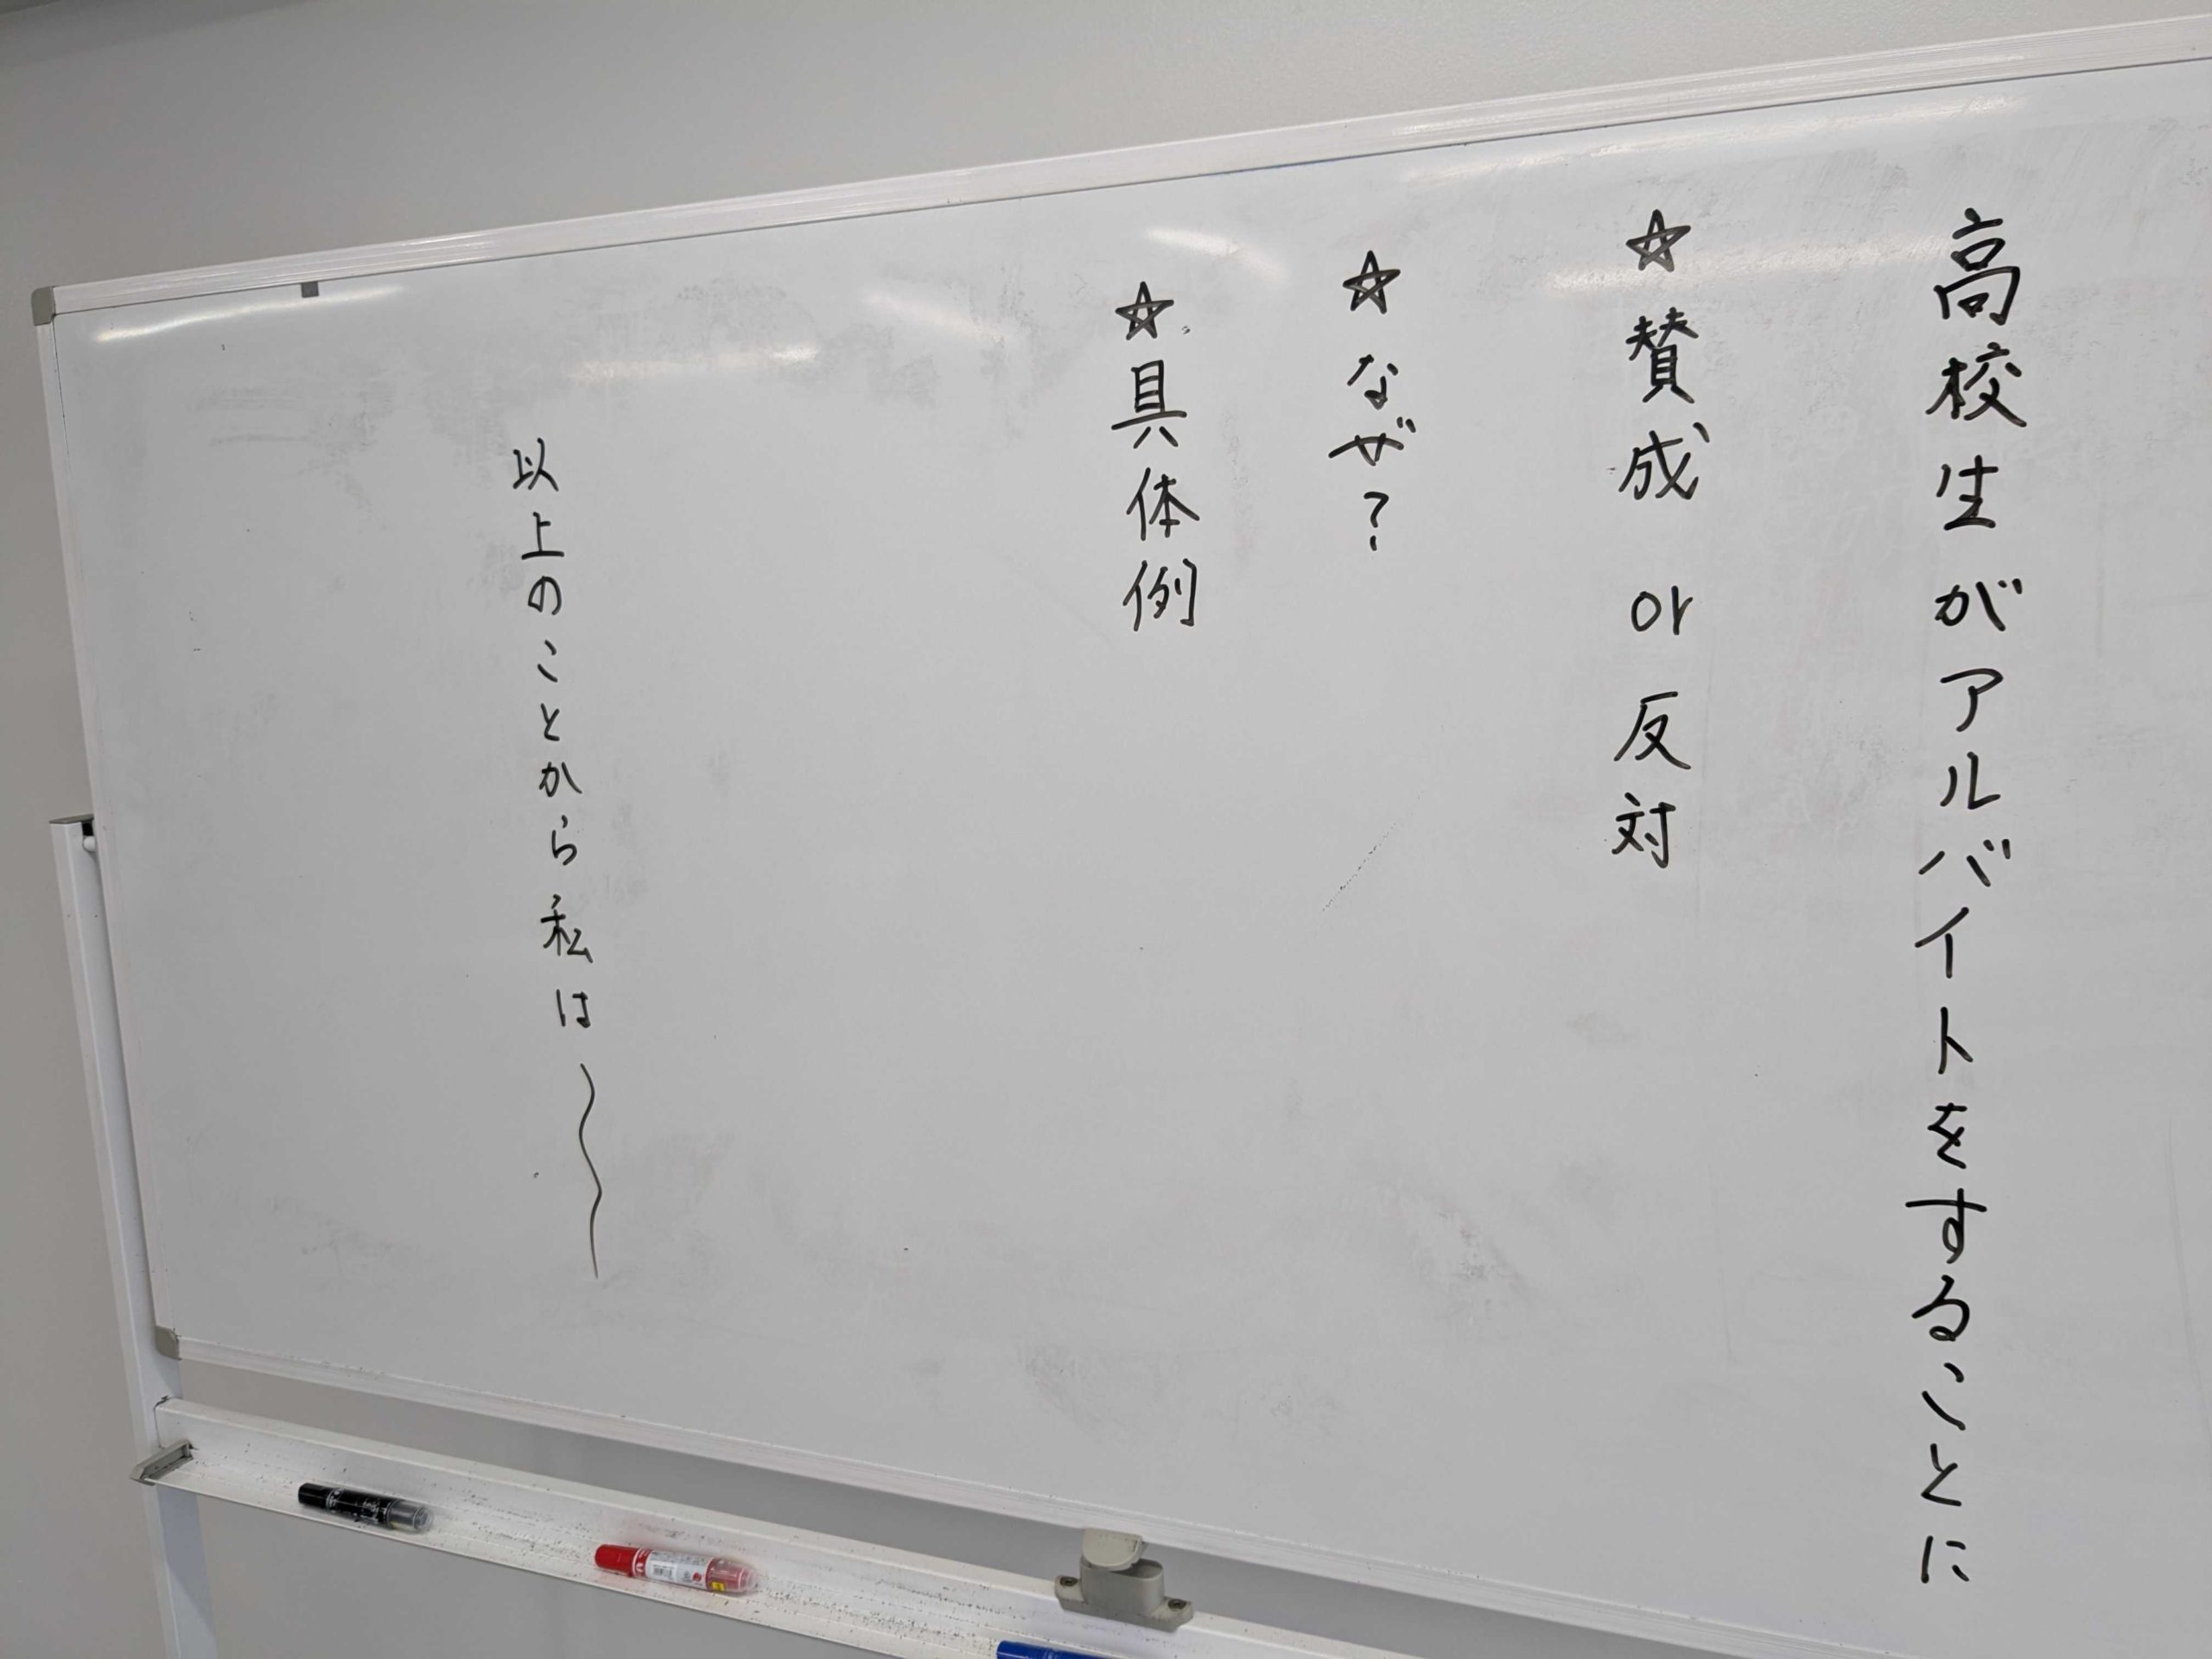 高校生がアルバイトをすることに
☆賛成 or 反対
☆なぜ?
☆具体例
以上のことから私は〜